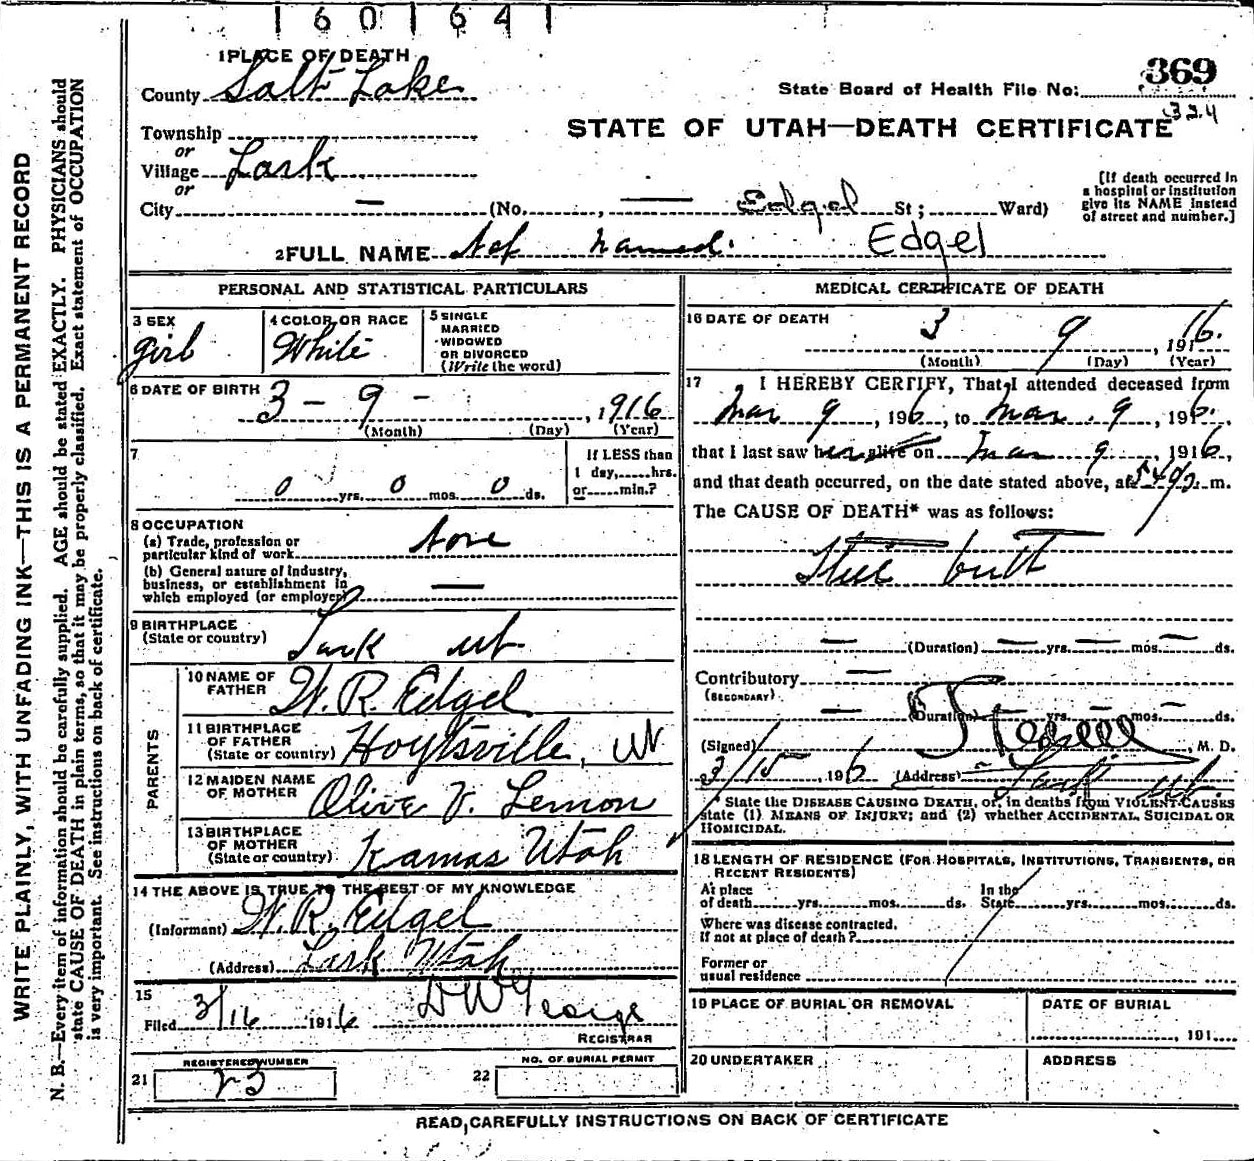 1601641
1 PLACE OF DEATH
County Salt Lake
State Board of Health File No. 369
324
STATE OF UTAH—DEATH CERTIFICATE
Township
or
Village Lark
or
City — (No. , — Edgel St ; Ward)
[If death occurred in
a hospital or institution
give its NAME instead
of street and number.]
2 FULL NAME Not named. Edgel
PERSONAL AND STATISTICAL PARTICULARS
3 SEX
girl
4 COLOR OR RACE
White
5 SINGLE
MARRIED
WIDOWED
OR DIVORCED
(Write the word)
6 DATE OF BIRTH 3 – 9 – , 1916
(Month) (Day) (Year)
7
0 yrs. 0 mos. 0 ds.
If LESS than
1 day, hrs.
or min.?
8 OCCUPATION
(a) Trade, profession or
particular kind of work None
(b) General nature of industry,
business, or establishment in
which employed (or employer) —
9 BIRTHPLACE
(State or country) Lark Ut
PARENTS
10 NAME OF
FATHER W. R. Edgel
11 BIRTHPLACE
OF FATHER
(State or country) Hoytsville, Ut
12 MAIDEN NAME
OF MOTHER Olive V. Lemon
13 BIRTHPLACE
OF MOTHER
(State or country) Kamas Utah
14 THE ABOVE IS TRUE TO THE BEST OF MY KNOWLEDGE
(Informant) W. R. Edgel
(Address) Lark Utah
15
Filed 3/16 1916 D W George
REGISTRAR
REGISTERED NUMBER
21 23
NO. OF BURIAL PERMIT
22
MEDICAL CERTIFICATE OF DEATH
16 DATE OF DEATH
3 9 , 191 16.
(Month) (Day) (Year)
17 I HEREBY CERTIFY, That I attended deceased from
Mar 9 , 1916, to Mar. 9 , 1916.
that I last saw her alive on Mar 9 , 1916,
and that death occurred, on the date stated above, at m.
The CAUSE OF DEATH* was as follows:
Still birth
— (Duration) — yrs. — mos. — ds.
Contributory —
(SECONDARY)
— (Duration) yrs. — mos. — ds.
(Signed) , M. D.
3/15 , 1916 (Address) Lark Ut.
* State the DISEASE CAUSING DEATH, or, in deaths from VIOLENT CAUSES
state (1) MEANS OF INJURY; and (2) whether ACCIDENTAL, SUICIDAL OR
HOMICIDAL.
18 LENGTH OF RESIDENCE (FOR HOSPITALS, INSTITUTIONS, TRANSIENTS, OR
RECENT RESIDENTS)
At place
of death yrs. mos. ds.
In the
State yrs. mos. ds.
Where was disease contracted,
If not at place of death?
Former or
usual residence
19 PLACE OF BURIAL OR REMOVAL
DATE OF BURIAL
, 191
20 UNDERTAKER
ADDRESS
READ CAREFULLY INSTRUCTIONS ON BACK OF CERTIFICATE
WRITE PLAINLY, WITH UNFADING INK—THIS IS A PERMANENT RECORD
N. B.—Every item of information should be carefully supplied. AGE should be stated EXACTLY. PHYSICIANS should
state CAUSE OF DEATH in plain terms, so that it may be properly classified. Exact statement of OCCUPATION
is very important. See instructions on back of certificate.